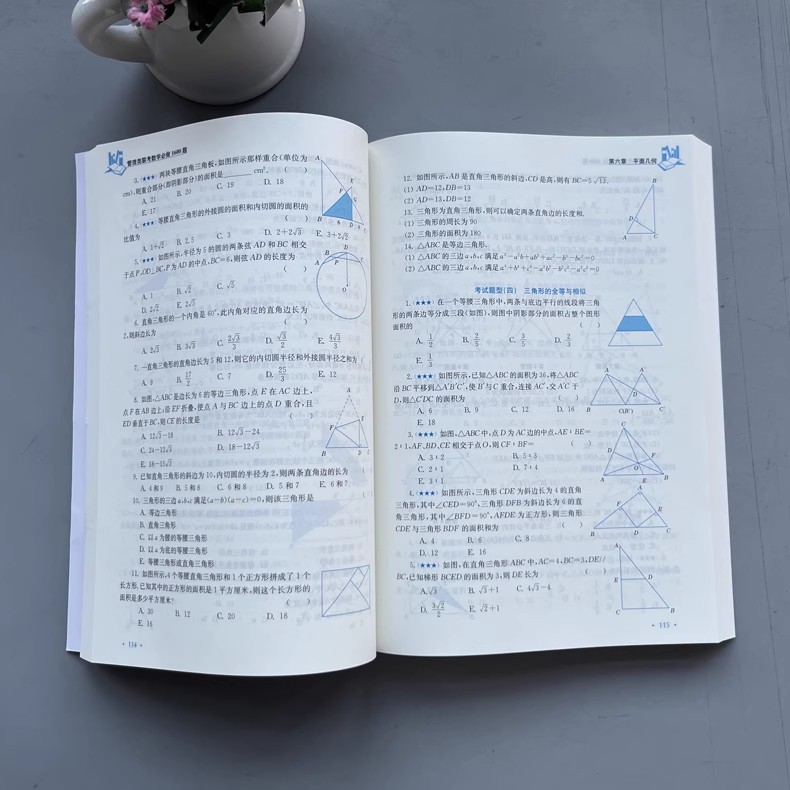 管理类联考数学必做1600题
3.(★★★)两块等腰直角三角板,如图所示那样重合(单位为
cm),则重合部分(即阴影部分)的面积是______cm². ( )
A. 21 B. 20 C. 19 D. 18
E. 17
4.(★★★)等腰直角三角形的外接圆的面积和内切圆的面积的
比值为 ( )
A. 1+√2 B. 2.5 C. 3 D. 2+2√3 E. 3+2√2
5.(★★★)如图所示,半径为5的圆的两条弦AD和BC相交
于点P,OD⊥BC,P为AD的中点,BC=6,则弦AD的长度为
( )
A. 1 B. √2 C. √5
D. 2√2 E. 2√5
6. 直角三角形的一个内角是60°,此内角对应的直角边长为
2,则斜边长为 ( )
A. 2√3 B. 3√3 C. 2√3/3 D. √3/2 E. 4√3/3
7. 一直角三角形的直角边长为5和12,则它的内切圆半径和外接圆半径之和为(
A. 9 B. 17/2 C. 7 D. 25/3 E. 12
8. 如图,△ABC是边长为6的等边三角形,点E在AC边上,
点F在AB边上;沿EF折叠,使点A与BC边上的点D重合,且
ED垂直于BC,则CE的长度是 ( )
A. 12√3-18 B. 12√3-24
C. 24-12√3 D. 18-12√3
E. 18-15√3
9. 已知直角三角形的斜边边为10,内切圆的半径为2,则两条直角边的长为
A. 4和9 B. 5和8 C. 6和8 D. 5和7 E. 6和7
10. 三角形的三边a,b,c满足(a-b)(a-c)=0,则该三角形是
A. 等边三角形
B. 直角三角形
C. 以a为腰的等腰三角形
D. 以a为底的等腰三角形
E. 等腰三角形或直角三角形
11. 如图所示,4个等腰直角三角形和1个正方形拼成了1个
长方形,已知其中的正方形的面积是1平方厘米,则这个长方形的
面积是多少平方厘米? ( )
A. 30 B. 12 C. 20 D. 18
E. 16
• 114 •
第六章 平面几何
12. 如图所示,AB是直角三角形的斜边,CD是高,则有BC=5√13.
(1) AD=12,DB=13
(2) AD=13,DB=12
13. 三角形为直角三角形,则可以确定两条直角边的长度和.
(1) 三角形的周长为90
(2) 三角形的面积为180
14. △ABC是等边三角形.
(1) △ABC的三边a,b,c满足a³-a²b+ab²+ac²-b³-bc²=0
考试题型(四) 三角形的全等与相似
1.(★★★)在一个等腰三角形中,两条与底边平行的线段将三角
形的两条边等分成三段(如图),则图中阴影部分的面积占整个图形
面积的 ( )
A. 1/2 B. 2/5 C. 3/5 D. 2/3
E. 1/3
2.(★★★)如图所示,已知△ABC的面积为36,将△ABC
沿BC平移到△A'B'C',使B'与C重合,连接AC',交A'C于
D,则△C'DC的面积为 ( )
A. 6 B. 9 C. 12 D. 16
E. 18
3.(★★★)如图,△ABC中,点D为AC边的中点,AE:BE=
2:1,AF、BD、CE相交于点O,则CF:BF= ( )
A. 3:2 B. 5:3
C. 2:1 D. 7:4
E. 3:1
4.(★★★)如图所示,三角形CDE为斜边长为4的直角
三角形,其中∠CED=90°,三角形DFB为斜边长为6的直
角三角形,其中∠BFD=90°,AFDE为正方形,则三角形
CDE与三角形BDF的面积和为 ( )
A. 4 B. 6 C. 8
D. 12 E. 16
5.(★★★)如图,在直角三角形ABC中,AC=4,BC=3,DE//
BC,已知梯形BCED的面积为3,则DE长为 ( )
A. √3 B. √3+1 C. 4√3-4
D. 3√2/2 E. √2+1
• 115 •